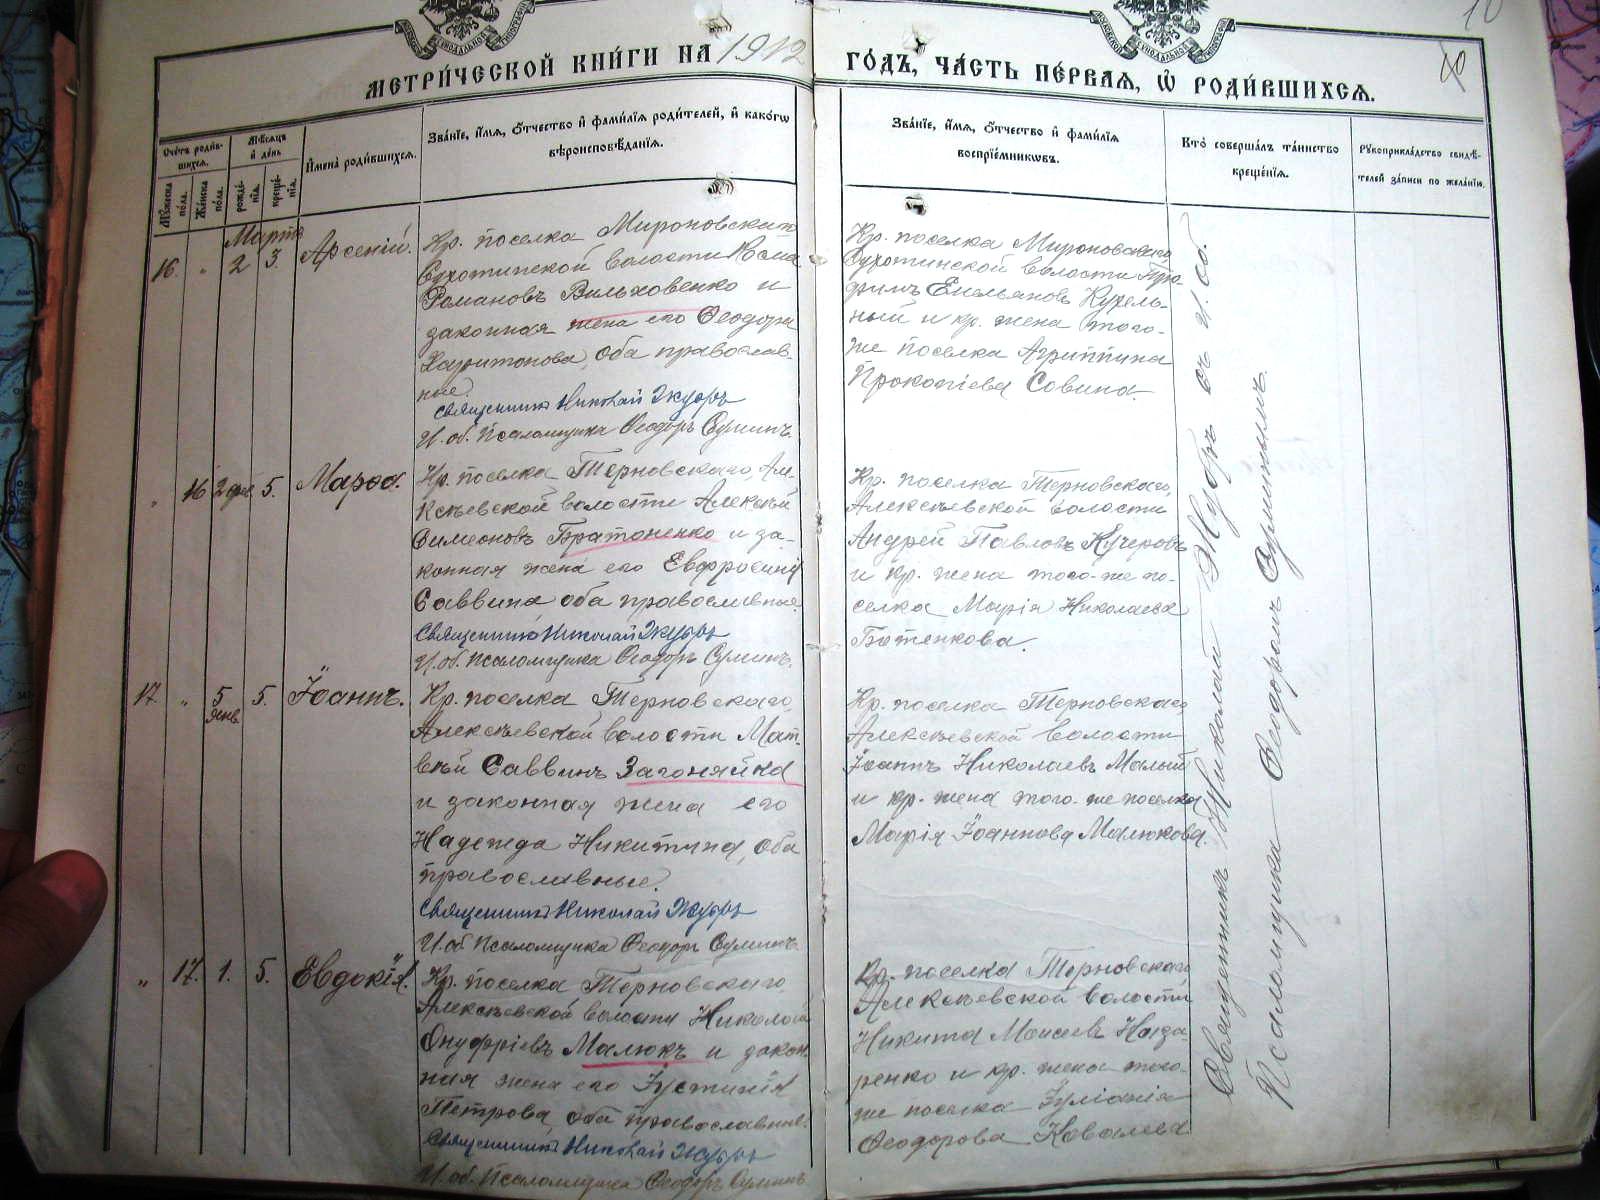 МЕТРИ́ЧЕСКОЙ КНИ́ГИ НА 1912 ГО́ДЪ, ЧА́СТЬ ПЕ́РВАѦ, Ѡ҆ РОДИ́ВШИХСѦ.
Сче́тъ роди́в-
шихсѧ.
Мѣ́сѧцъ
и҆ де́нь
Мꙋ́жеска
по́ла.
Же́нска
по́ла.
рожде́-
нїѧ.
креще́-
нїѧ.
И҆мена̀ роди́вшихсѧ.
Зва́нїе, и҆́мѧ, ѻ҆́тчество и҆ фами́лїѧ роди́телей, и҆ како́гѡ
вѣроисповѣ́данїѧ.
Зва́нїе, и҆́мѧ, ѻ҆́тчество и҆ фами́лїѧ
воспрїе́мникѡвъ.
Кто̀ соверша́лъ та́инство
креще́нїѧ.
Рꙋкоприкла́дство свидѣ́-
телей за́писи по жела́нїю.
Марта
16. " 2 3. Арсеній.
Кр. поселка Мироновскаго
Сухотинской волости Косма
Романовъ Вильховенко и
законная жена его Ѳеодора
Харитонова, оба православ-
ные.
Священникъ Николай Жубръ
И. об. Псаломщика Ѳеодоръ Суминъ.
Кр. поселка Мироновскаго,
Сухотинской волости
Емельяновъ
ный и кр. жена того-
же поселка Агриппина
Прокопіева Савина.
" 16 2 5. Марѳа.
Кр. поселка Терновскаго, Але-
ксѣевской волости Алексѣй
Симеоновъ Братоненко и за-
конная жена его Евфросинія
Саввина оба православные.
Священникъ Николай Жубръ
И. об. псаломщика Ѳеодоръ Суминъ.
Кр. поселка Терновскаго,
Алексѣевской волости
Андрей Павловъ Кучеровъ
и кр. жена того-же по-
селка Марія Николаева
Ботенкова.
17 " 5 5. Іоаннъ.
Кр. поселка Терновскаго,
Алексѣевской волости Мат-
вѣй Саввинъ Загоняйка
и законная жена его
Надежда Никитина, оба
православные.
Священникъ Николай Жубръ
И. об. Псаломщика Ѳеодоръ Суминъ
Кр. поселка Терновскаго,
Алексѣевской волости
Іоаннъ Николаевъ Малый
и кр. жена того-же поселка
Марія Іоаннова Малюкова.
" 17. 1. 5. Евдокія.
Кр. поселка Терновскаго
Алексѣевской волости Николай
Онуфріевъ Малюкъ и закон-
ная жена его Іустинія
Петрова, оба православные.
Священникъ Николай Жубръ
И. об. Псаломщика Ѳеодоръ Суминъ
Кр. поселка Терновскаго
Алексѣевской волости
Никита Моисеевъ Наза-
ренко и кр. жена того-
же поселка Іуліанія
Ѳеодорова Ковалева
Священникъ Николай Жубръ съ и. об.
Псаломщика Ѳеодоромъ Суминымъ.